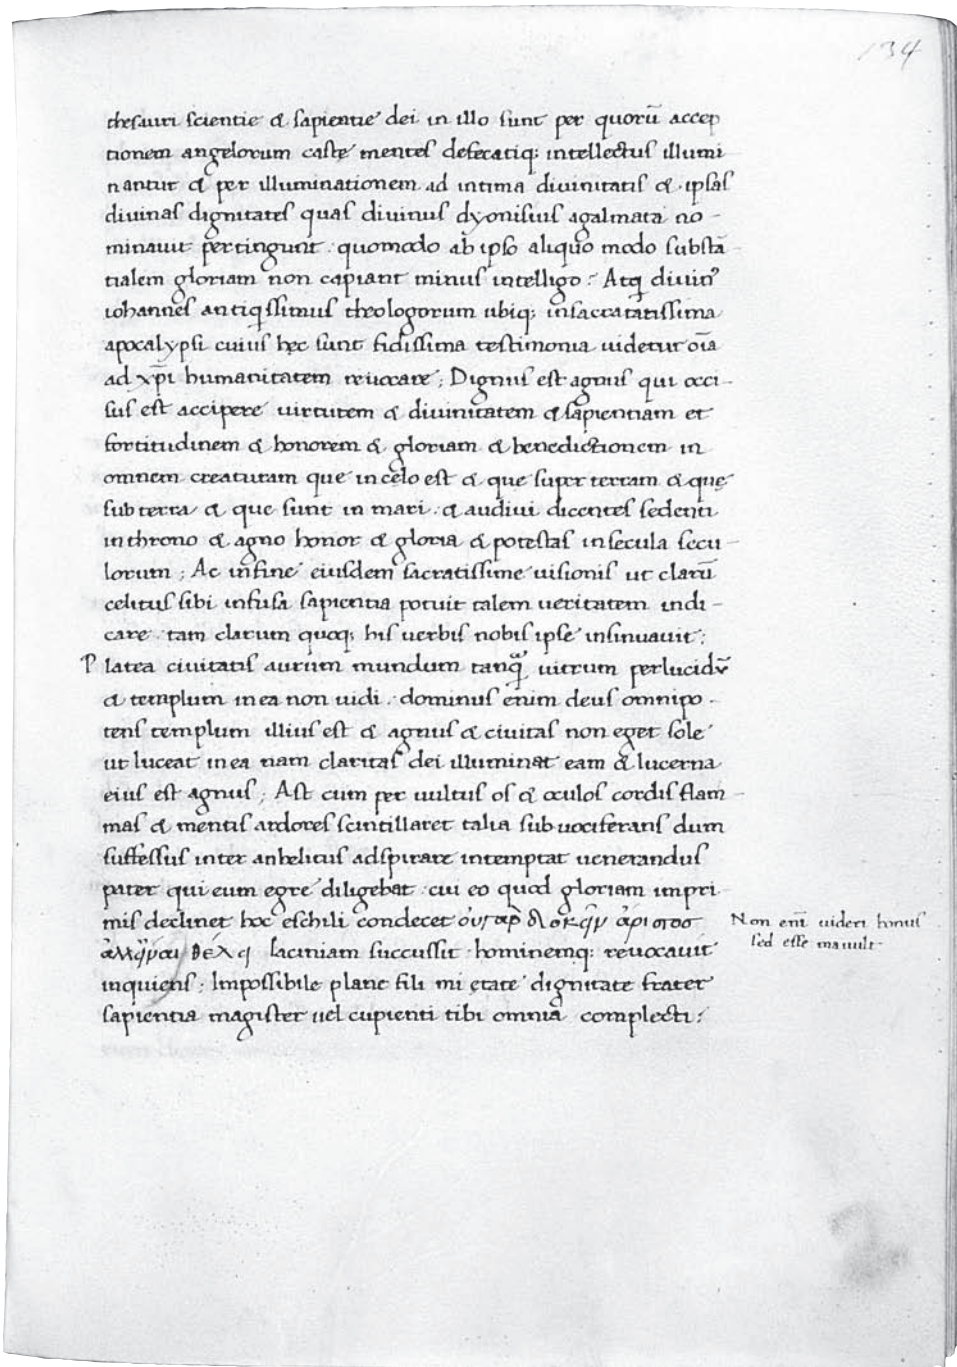 134
thesauri scientie & sapientie dei in illo sunt per quorū accep
tionem angelorum castę mentes defecatiq; intellectus illumi
nantur & per illuminationem ad intima divinitatis & ipsas
diuinas dignitates quas diuinus dyonisius agalmata no-
minauit pertingunt. quomodo ab ipso aliquo modo substā-
tialem gloriam non capiant minus intelligo? Atq diuin᾿
iohannes antiquissimus theologorum ubiq; in sacratissima
apocalypsi cuius hęc sunt fidissima testimonia uidetur oīa
ad xp̄i humanitatem reuocare; Dignus est agnus qui occi-
sus est accipere uirtutem & diuinitatem & sapientiam et
fortitudinem & honorem & gloriam & benedictionem in
omnem creaturam que in cęlo est & que super terram & quę
sub terra & que sunt in mari. & audiui dicentes sedenti
in throno & agno honor & gloria & potestas in secula secu-
lorum; Ac in fine eiusdem sacratissime uisionis ut clarū
celitus sibi infusa sapientia potuit talem ueritatem indi-
care. tam clarum quoq; his uerbis nobis ipse insinuauit;
Platea ciuitatis aurum mundum tanq̄ uitrum perlucidū
& templum in ea non uidi. dominus enim deus omnipo-
tens templum illius est & agnus & ciuitas non eget sole
ut luceat in ea nam claritas dei illuminat eam & lucerna
eius est agnus; Ast cum per uultus os & oculos cordis flam-
mas & mentis ardores scintillaret talia sub uociferans dum
suffessus inter anhelitus adspirare intemptat uenerandus
pater qui eum egre diligebat. cui eo quod gloriam inpri-
mis declinet hoc eschili condecet οὐ γαρ δοκεῖν ἀριστος
Non eni᷉ uideri bonus
sed esse mauult-
ἀλλ εἶναι θελει laciniam succussit. hominemq; reuocauit
inquiens; Impossibile plane fili mi ętate dignitate frater
sapientia magister uel cupienti tibi omnia complecti;